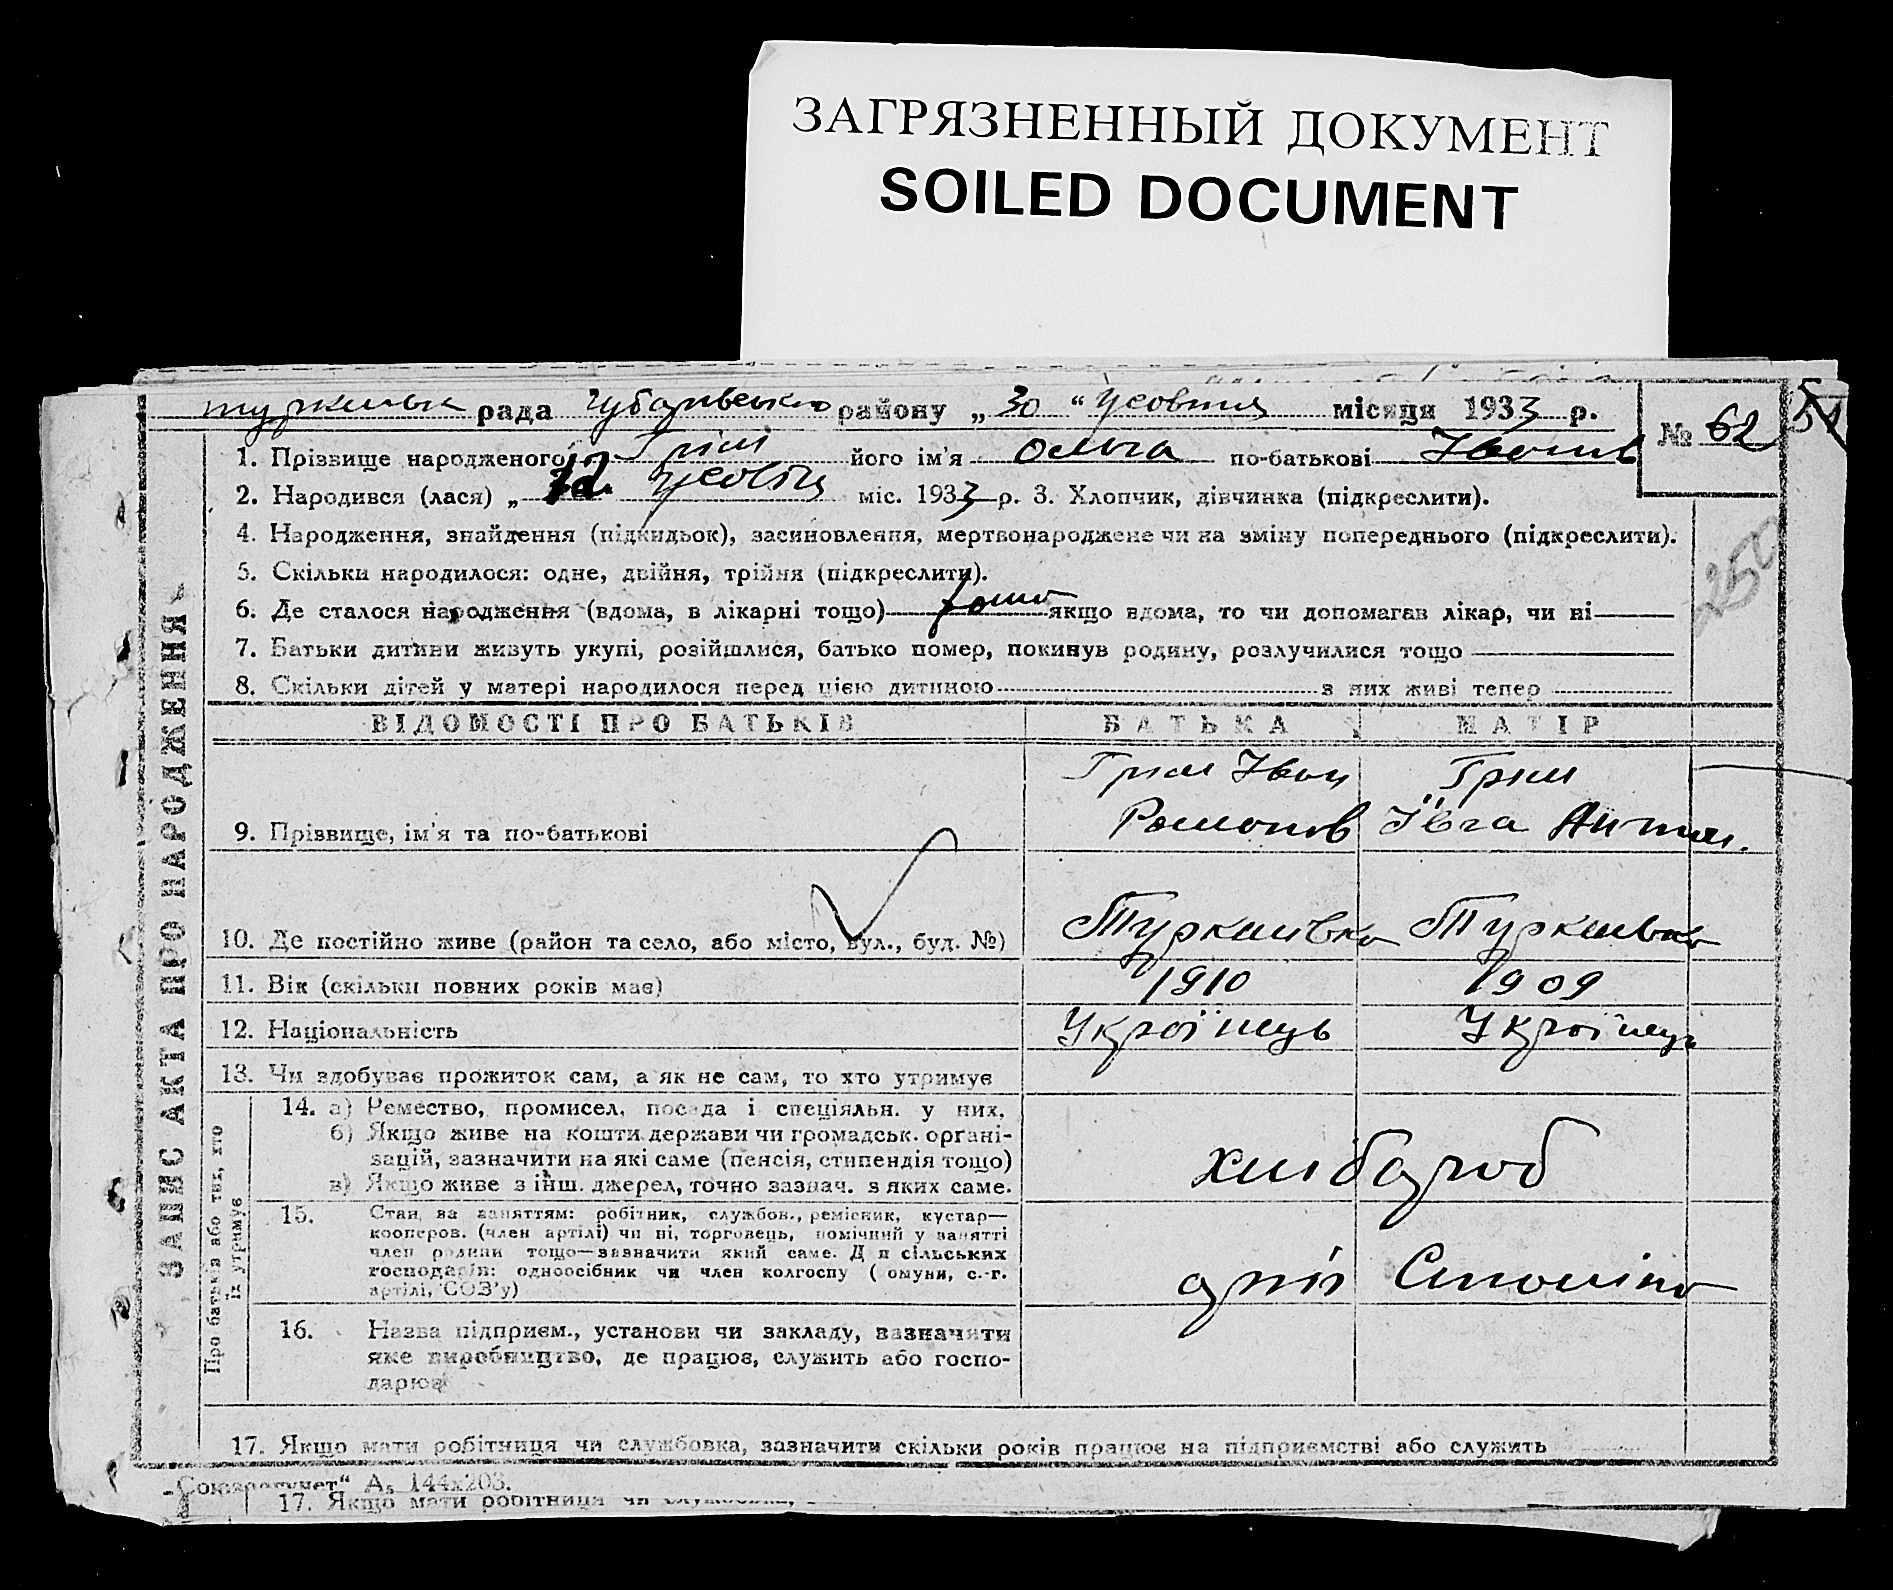 ЗАГРЯЗНЕННЫЙ ДОКУМЕНТ
SOILED DOCUMENT
рада району „ 30 “ місяця 1933 р.
№ 62 51
1. Прізвище народженого його ім'я Ольга по-батькові Іванів
2. Народився (лася) „ 12 міс. 1933 р. 3. Хлопчик, дівчинка (підкреслити).
4. Народження, знайдення (підкидьок), засиновлення, мертвонароджене чи на зміну попереднього (підкреслити).
250
5. Скільки народилося: одне, двійня, трійня (підкреслити).
6. Де сталося народження (вдома, в лікарні тощо) дома якщо вдома, то чи допомагав лікар, чи ні
7. Батьки дитини живуть укупі, розійшлися, батько помер, покинув родину, розлучилися тощо
8. Скільки дітей у матері народилося перед цією дитиною з них живі тепер
ВІДОМОСТІ ПРО БАТЬКІВ БАТЬКА МАТІР
9. Прізвище, ім'я та по-батькові Іван Романів Ївга
10. Де постійно живе (район та село, або місто, вул., буд. №) Туркенівка Туркенівка
11. Вік (скільки повних років має) 1910 1909
12. Національність Україець Україець
13. Чи здобуває прожиток сам, а як не сам, то хто утримує
14. а) Ремество, промисел, посада і спеціяльн. у них.
б) Якщо живе на кошти держави чи громадськ. органі-
зацій, зазначити на які саме (пенсія, стипендія тощо)
в) Якщо живе з інш. джерел, точно зазнач. з яких саме.
хлібароб
15. Стан за заняттям: робітник, службов., ремісник, кустар—
кооперов. (член артілі) чи ні, торговець, помічний у занятті
член родини тощо—зазначити який саме. Для сільських
господарів: одноосібник чи член колгоспу (комуни, с.-г.
артілі, СОЗ'у)
16. Назва підприєм., установи чи закладу, зазначити
яке виробництво, де працює, служить або госпо-
дарює
17. Якщо мати робітниця чи службовка, зазначити скільки років працює на підприємстві або служить
ЗАПИС АКТА ПРО НАРОДЖЕННЯ
Про батьків або тих, хто
їх утримує
А₅ 144х203.
17. Якщо мати робітниця чи